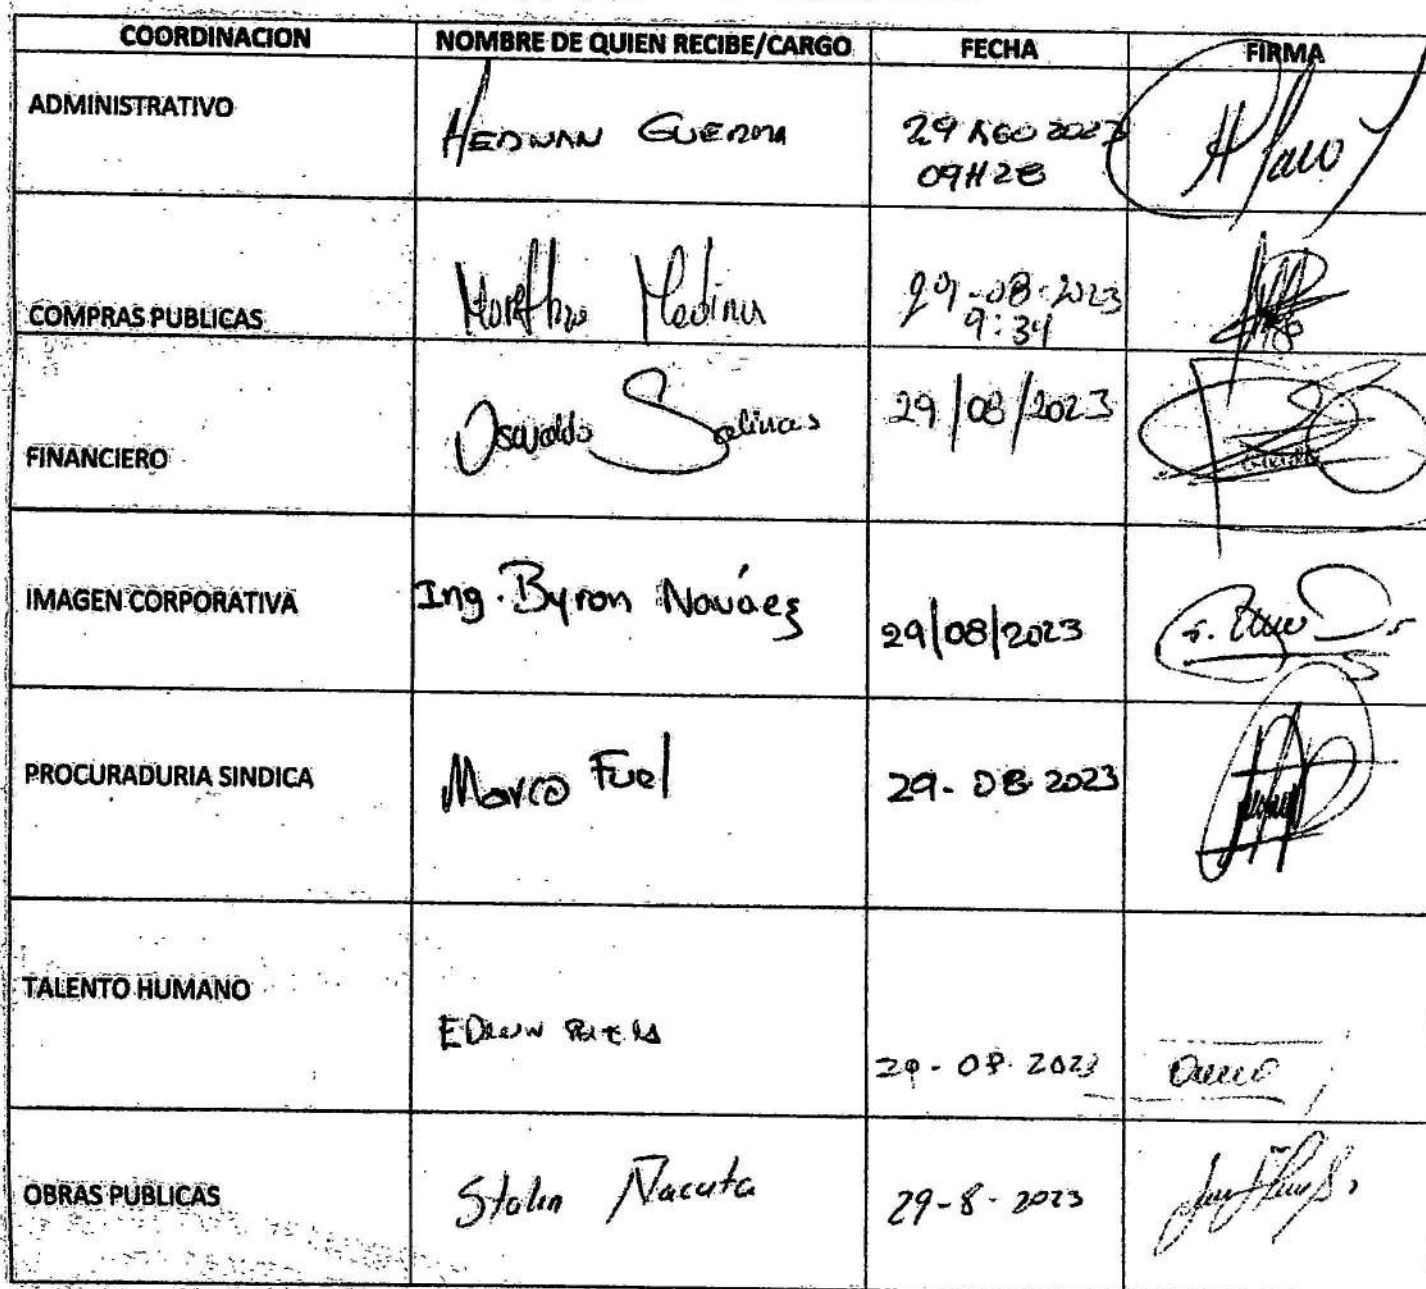 COORDINACION NOMBRE DE QUIEN RECIBE/CARGO FECHA FIRMA
ADMINISTRATIVO HERNAN GUERRA 29 AGO 2023
09H28
COMPRAS PUBLICAS Medina 29-08-2023
9:34
FINANCIERO Osvaldo Salinas 29/08/2023
IMAGEN CORPORATIVA Ing. Byron Nováez 29/08/2023
PROCURADURIA SINDICA Marco Fuel 29-08 2023
TALENTO HUMANO
EDWIN 29-08-2023
OBRAS PUBLICAS Stalin Ñacata 29-8-2023